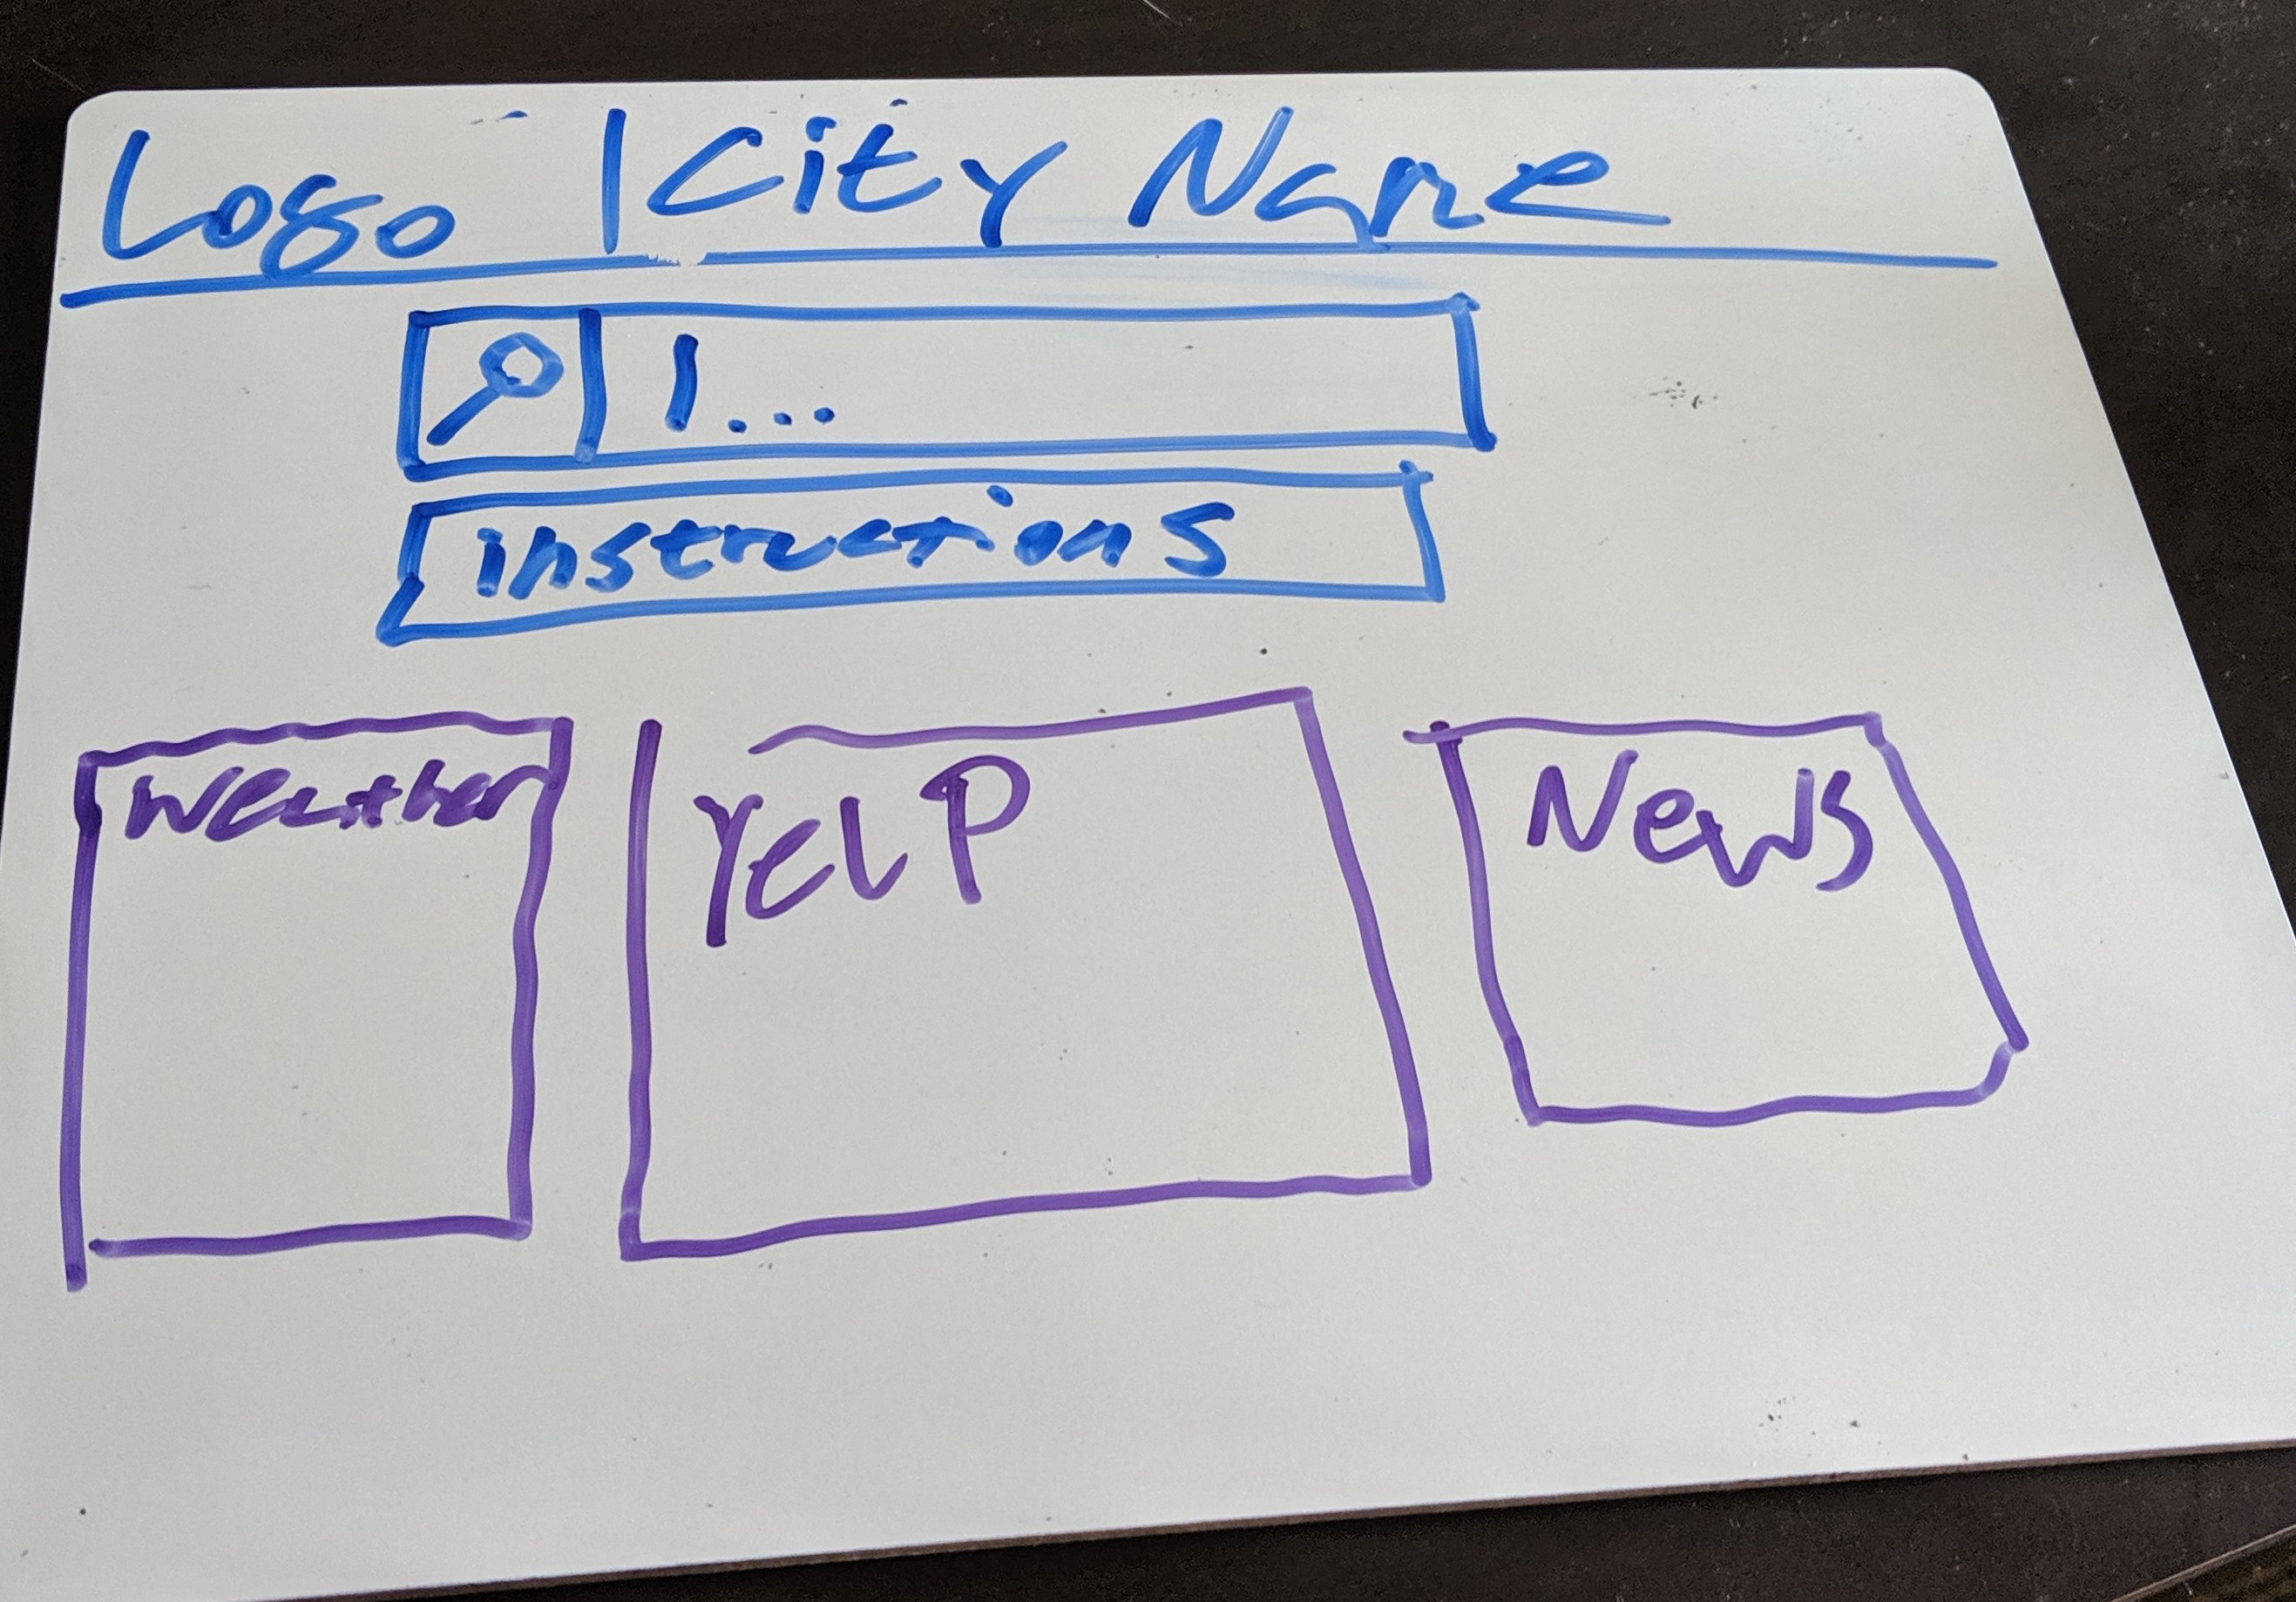 Logo | City Name
|...
instructions
Weather
YelP
News